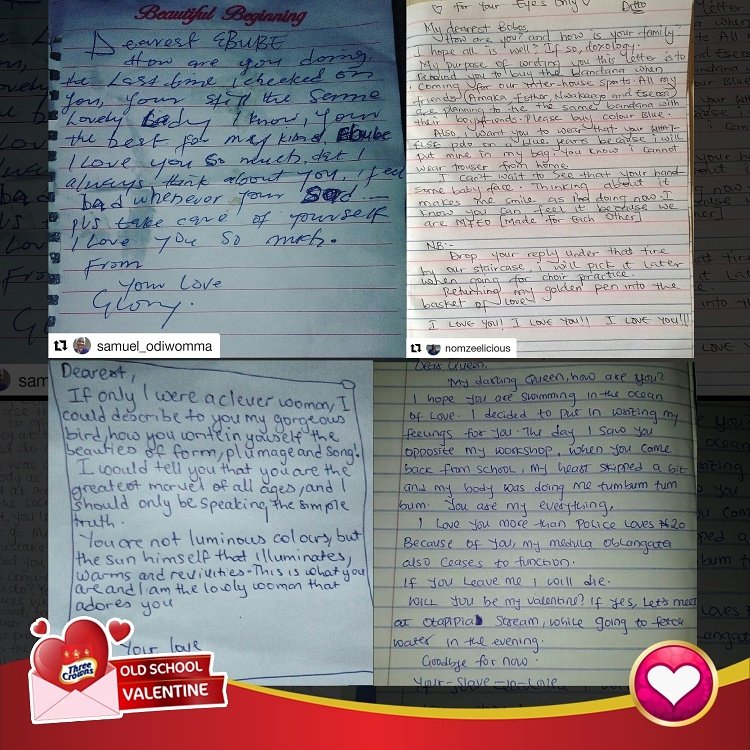 Beautiful Beginning
Dearest EBUBE
How are you doing,
the Last time i checked on
you, your still the same
Lovely Lady I know, your
the best for my kind Ebube
I Love you so much, dat I
always think about you, i feel
bad whenever your sad
pls take care of yourself
I Love you so mch.
From
Your Love
Glory.
samuel_odiwomma
For your Eyes Only
Ditto
My dearest Bobos
How are you? and how is your family
I hope all is well? If so, doxology.
My purpose of writing you this letter is to
Remind you to buy the bandana when
coming for our inter-house sports. All my
friends (Amaka, Esther, Nwakaego and Escoa)
are planning to tie the same bandana with
their boyfriends. Please buy colour Blue.
Also, I want you to wear that your
polo on a blue jeans because i will
put mine in my bag. you know i cannot
wear trouser from home.
I can't wait to see that your hand-
some baby face. Thinking about it
makes me smile as im doing now. I
know you can feel it because we
are MFEO [Made for Each Other]
NB:-
Drop your reply under that tire
by our staircase, i will pick it later
when going for choir practice.
Returning my golden pen into the
basket of love
I LOVE YOU! I LOVE YOU!! I LOVE YOU!!!
nomzeelicious
Dearest,
If only I were a clever woman, I
could describe to you my gorgeous
bird, how you unite in youself the
beauties of form, plumage and song!
I would tell you that you are the
greatest marvel of all ages, and I
should only be speaking the simple
truth.
You are not luminous colours, but
the sun himself that illuminates,
warms and revivities. This is what you
are and I am the lowly woman that
adores you
Your love
Dear Queen,
My darling Queen, how are you?
I hope you are swimming in the ocean
of Love. I decided to put in writing my
feelings for you. The day I saw you
opposite my workshop, when you come
back from school, my heart skipped a bit
and my body was doing me tumbum tum
bum. You are my everything,
I Love you more than Police Loves ₦20
Because of you, my medula oblangata
also ceases to function.
If you Leave me i will die.
Will you be my valentine? If yes, Let's meet
at Otapipia Stream, while going to fetch
water in the evening.
Goodbye for now.
Your-Slave-in-Love
Three Crowns
OLD SCHOOL
VALENTINE